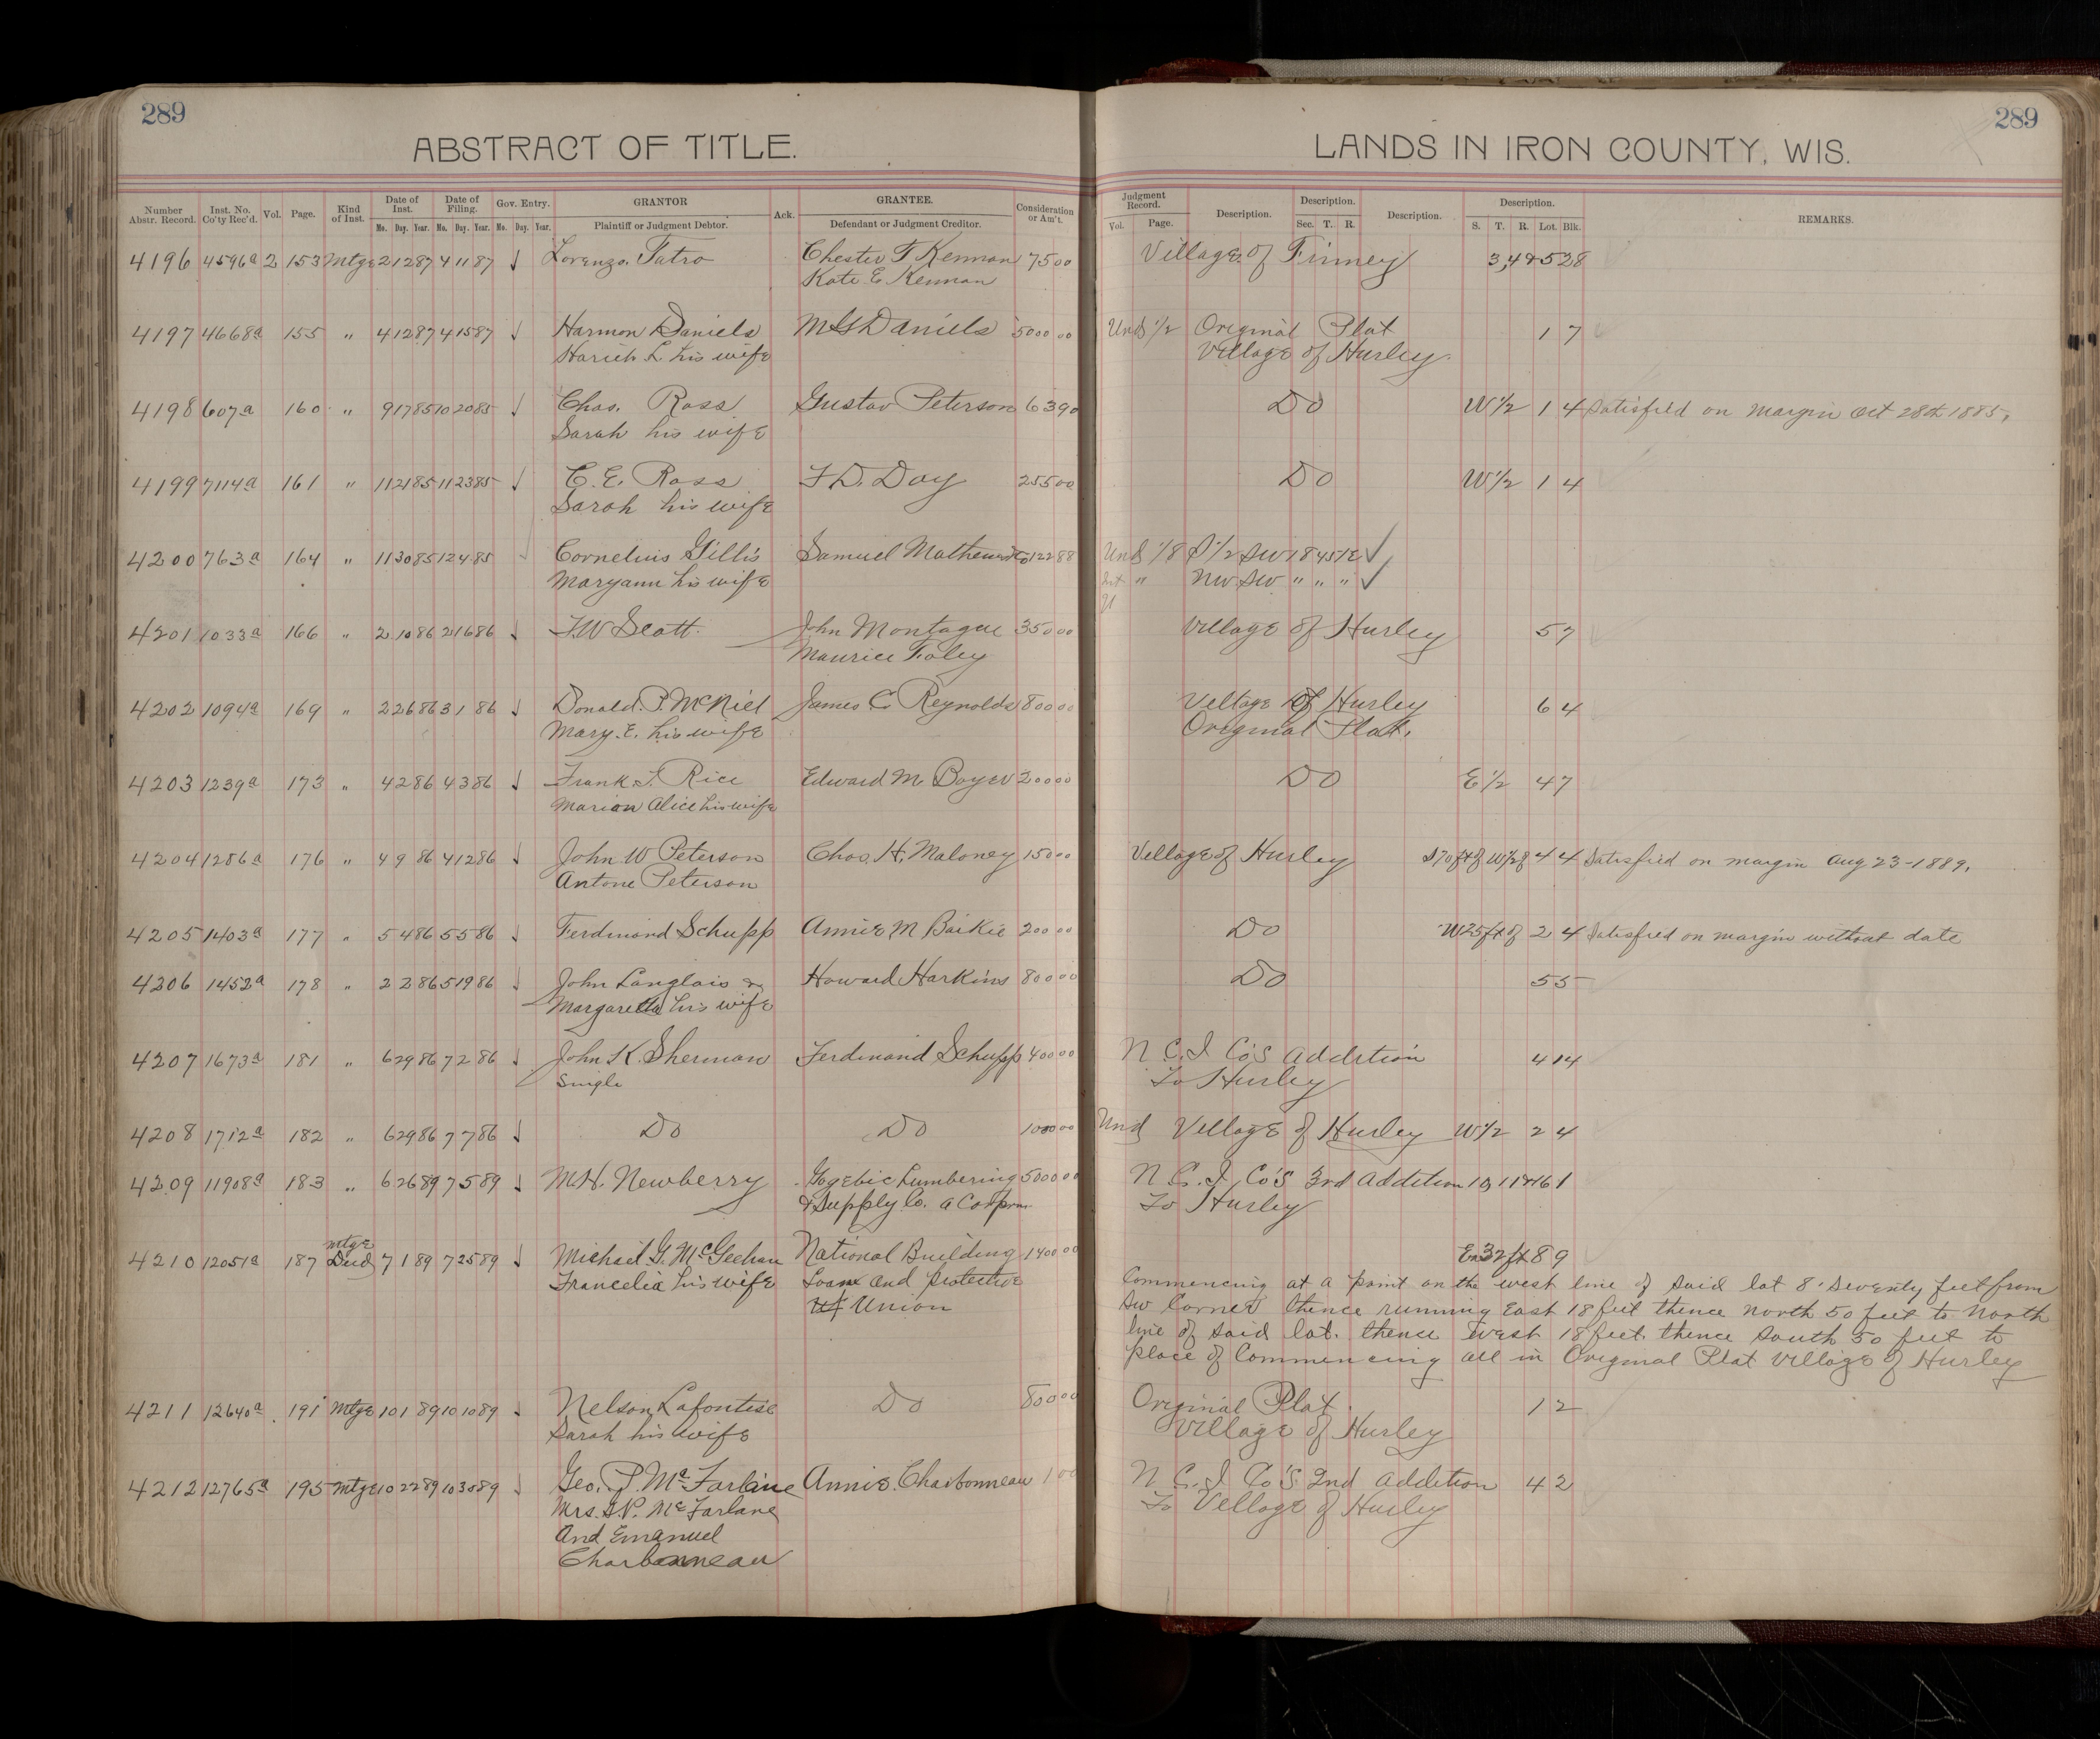 289
289
ABSTRACT OF TITLE.
LANDS IN IRON COUNTY, WIS.
Number Abstr. Record. Inst. No. Co'ty Rec'd. Vol. Page. Kind of Inst. Date of Inst. Mo. Day. Year. Date of Filing. Mo. Day. Year. Gov. Entry. Mo. Day. Year. GRANTOR Plaintiff or Judgment Debtor. Ack. GRANTEE. Defendant or Judgment Creditor. Consideration or Am't.
Judgment Record. Vol. Page. Description. Description. Sec. T. R. Description. Description. S. T. R. Lot. Blk. REMARKS.
4196 4596a 2 153 Mtge 2 12 87 4 11 87 √ Lorenzo Tatro Chester F Kennan 75 00 Village of Finney 3,4&5 28
Kate E. Kennan
4197 4668a 155 " 4 12 87 4 15 87 √ Harmon Daniels M G Daniels 5000 00 Und 1/2 Original Plat 1 7
L. his wife Village of Hurley.
4198 607a 160 " 9 17 85 10 20 85 √ Chas. Ross Gustav Peterson 63 90 Do W 1/2 1 4 Satisfied on margin Oct 28th 1885,
Sarah his wife
4199 7114a 161 " 11 21 85 11 23 85 √ C. E. Ross F D. Day 255 00 Do W 1/2 1 4
Sarah his wife
4200 763a 164 " 11 30 85 12 4 85 √ Cornelius Gillis Samuel Mathews 122 88 Und 1/8 S 1/2 SW 18 45 1E √
Maryann his wife Int " NW SW " " " √
4201 1033a 166 " 2 10 86 2 16 86 √ F. W Scott. John Montague 350 00 Village of Hurley 5 7
Maurice Foley
4202 1094a 169 " 2 26 86 3 1 86 √ Donald. P. McNiel James C. Reynolds 800 00 Village of Hurley 6 4
Mary. E. his wife Original Plat.
4203 1239a 173 " 4 2 86 4 3 86 √ Frank. I. Rice Edward M Boyer 200 00 Do E 1/2 4 7
Marion Alice his wife
4204 1286a 176 " 4 9 86 4 12 86 √ John W Peterson Chas. H. Maloney 150 00 Village of Hurley S 70 ft of W 1/2 of 4 4 Satisfied on margin Aug 23-1889.
Antone Peterson
4205 1403a 177 " 5 4 86 5 5 86 √ Ferdinand Schupp Annie M Baikie 200 00 Do W 25 ft of 2 4 Satisfied on margin without date
4206 1452a 178 " 2 2 86 5 19 86 √ John Langlais & Howard Harkins 800 00 Do 5 5
Margaretta his wife
4207 1673a 181 " 6 29 86 7 2 86 √ John K. Sherman Ferdinand Schupp 400 00 N C. I Co's Addition 4 14
Single To Hurley
4208 1712a 182 " 6 29 86 7 7 86 √ Do Do 100 00 Und Village of Hurley W 1/2 2 4
4209 11908a 183 " 6 26 89 7 5 89 √ M. H. Newberry Gogebic Lumbering 5000 00 N C. I Co's 3rd Addition 10, 11 & 16 1
& Supply Co. a Corprn To Hurley
Mtge
4210 12051a 187 Deed 7 1 89 7 25 89 √ Michael G. McGeehan National Building 1400 00 E 32 ft 8 9
Francelia his wife Loan and Protective Commencing at a point on the west line of said lot 8. Seventy feet from
Union SW Corner thence running East 18 feet thence north 50 feet to North
line of said lot. thence West 18 feet. thence South 50 feet to
place of Commencing all in Original Plat Village of Hurley
4211 12640a 191 Mtge 10 1 89 10 10 89 √ Nelson Lafontise Do 800 00 Original Plat 1 2
Sarah his wife Village of Hurley
4212 12765a 195 Mtge 10 22 89 10 30 89 √ Geo. P. McFarlane Annie. Charbonneau 1 00 N C. I Co's. 2nd Addition 4 2
Mrs. G. P. McFarlane To Village of Hurley
And Emanuel
Charbonneau